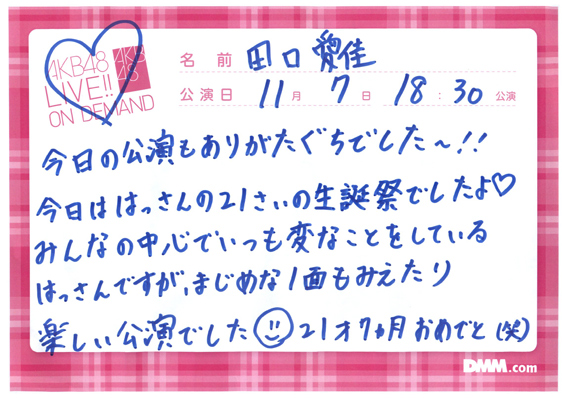 AKB48
LIVE!!
ON DEMAND
AKB
48
名前 田口愛佳
公演日 11月 7日 18:30 公演
今日の公演もありがたぐちでした〜!!
今日ははっさんの21さいの生誕祭でしたよ♡
みんなの中心でいつも変なことをしている
はっさんですが、まじめな1面もみえたり
楽しい公演でした☺21才7ヵ月おめでと(笑)
DMM.com